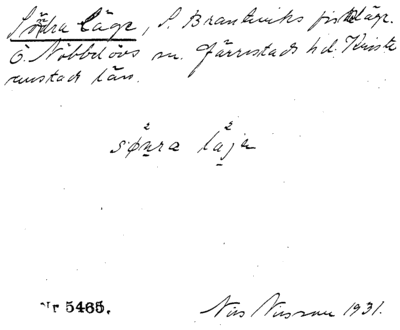 Södra Läge, S. Brantviks fiskläge.
Ö. Nöbbelövs sn. Järrestads hd. Kristi-
anstads län.
sønra läjə
Nr 5465. Nils Nilsson 1931.